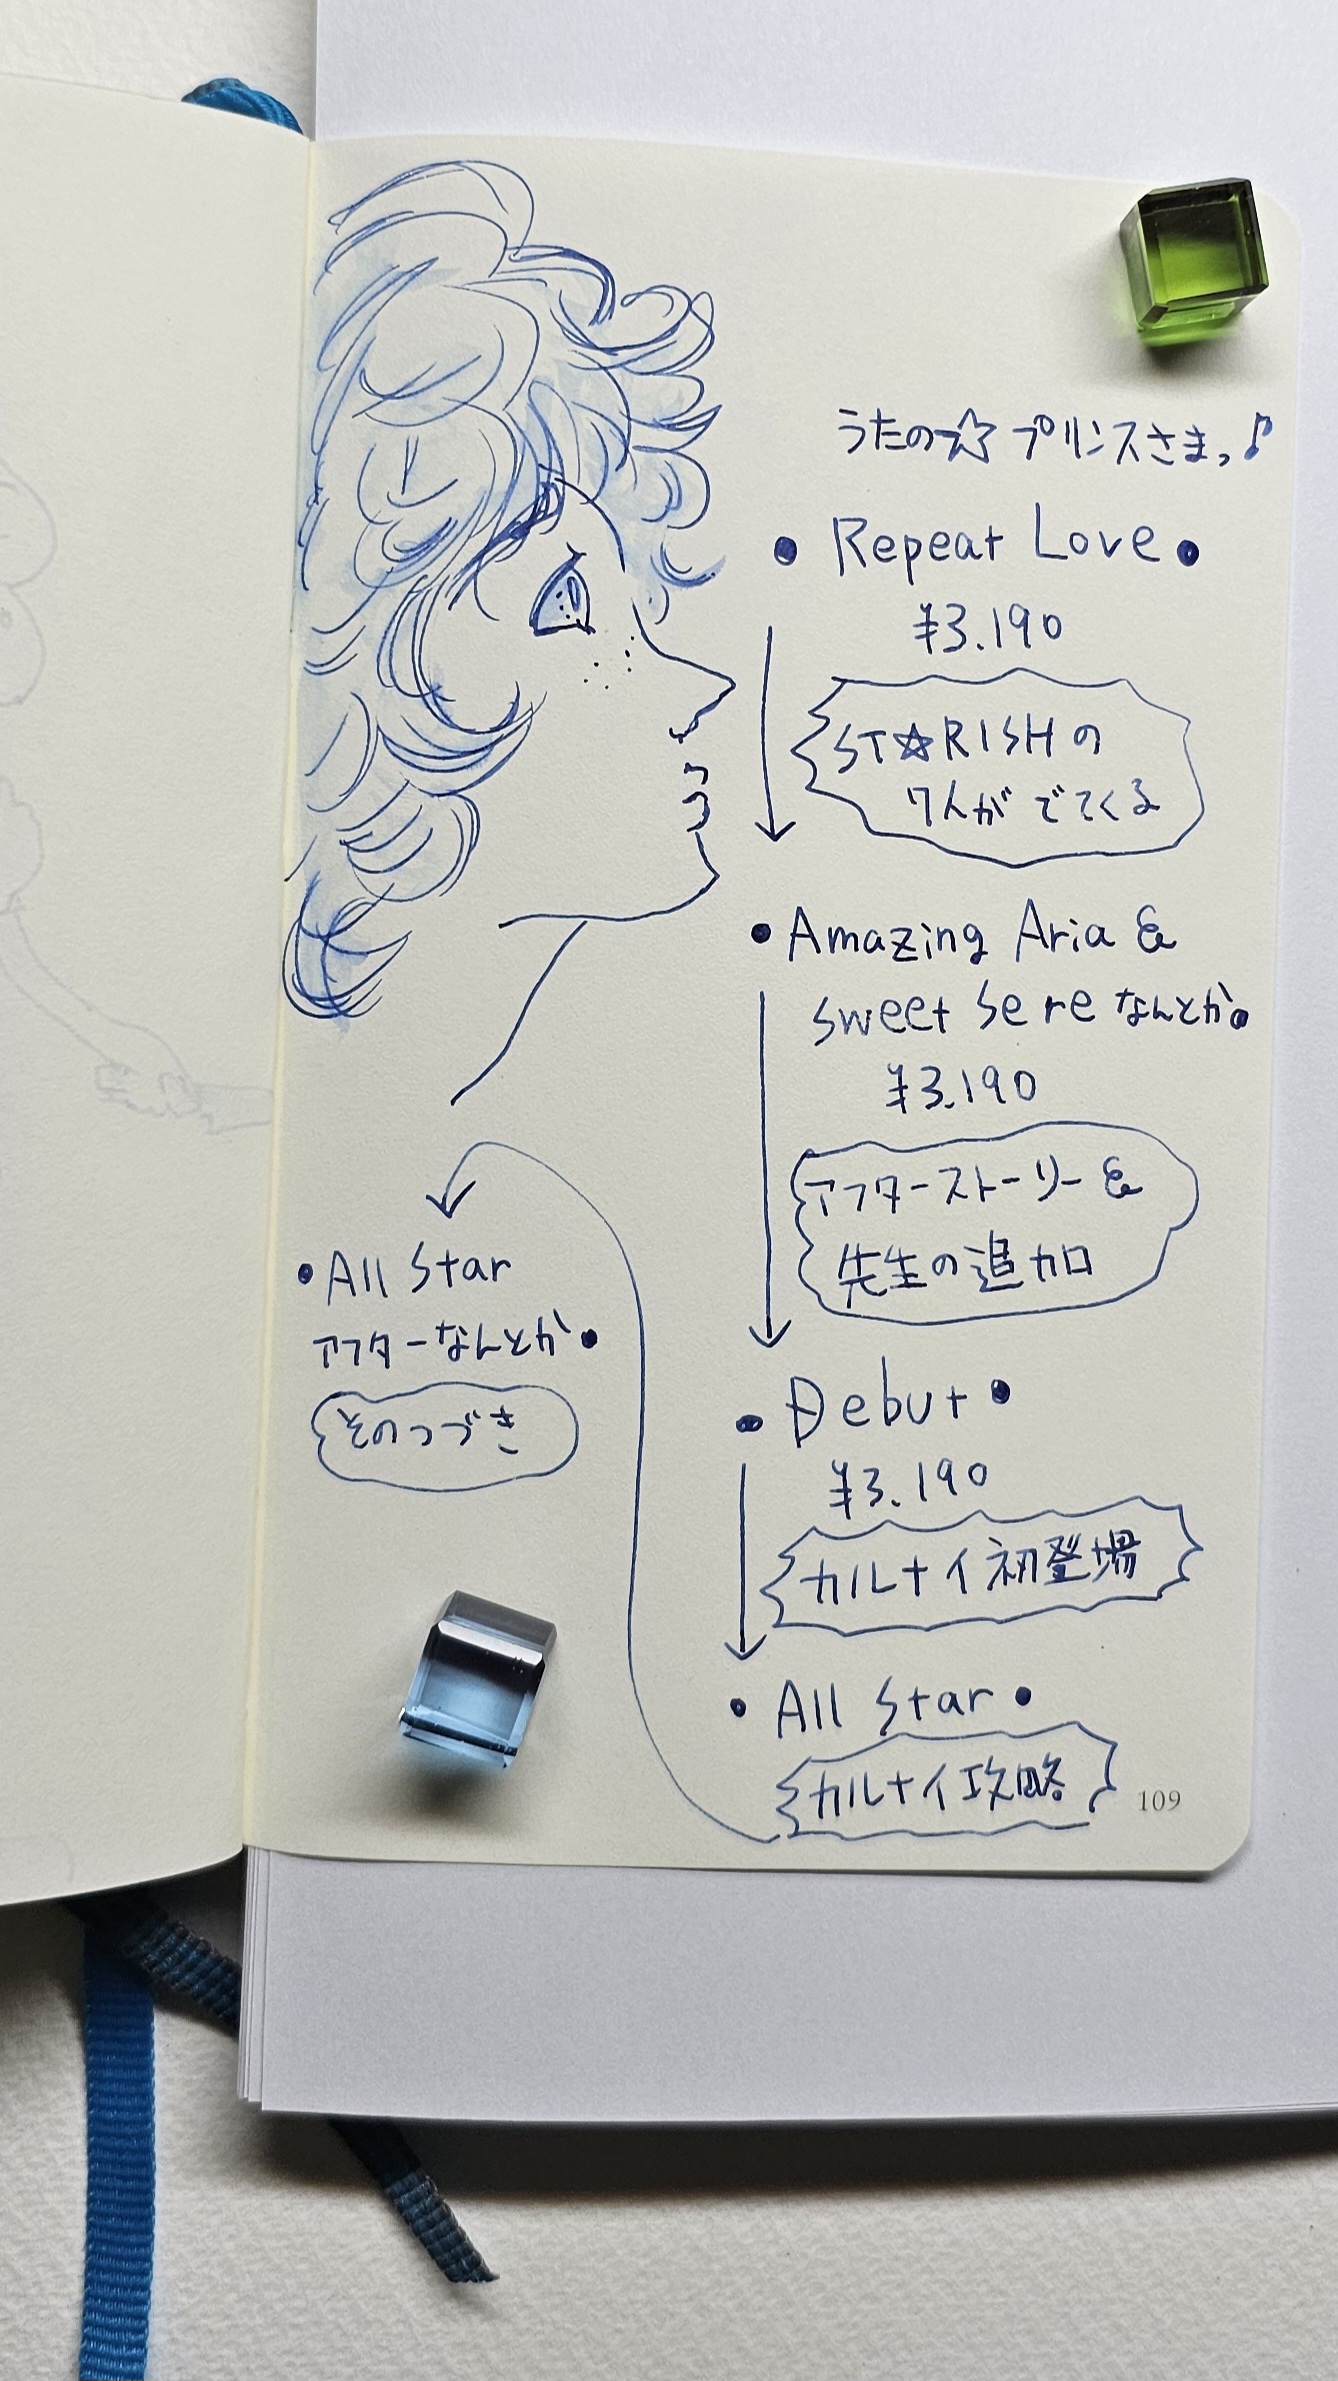 うたの☆プリンスさまっ♪
• Repeat Love •
¥3.190
ST★RISHの
7人がでてくる
• Amazing Aria &
Sweet Sere なんとか•
¥3.190
アフターストーリー &
先生の追加
• Debut •
¥3.190
カルナイ初登場
• All Star •
カルナイ攻略
• All Star
アフターなんとか•
そのつづき
109